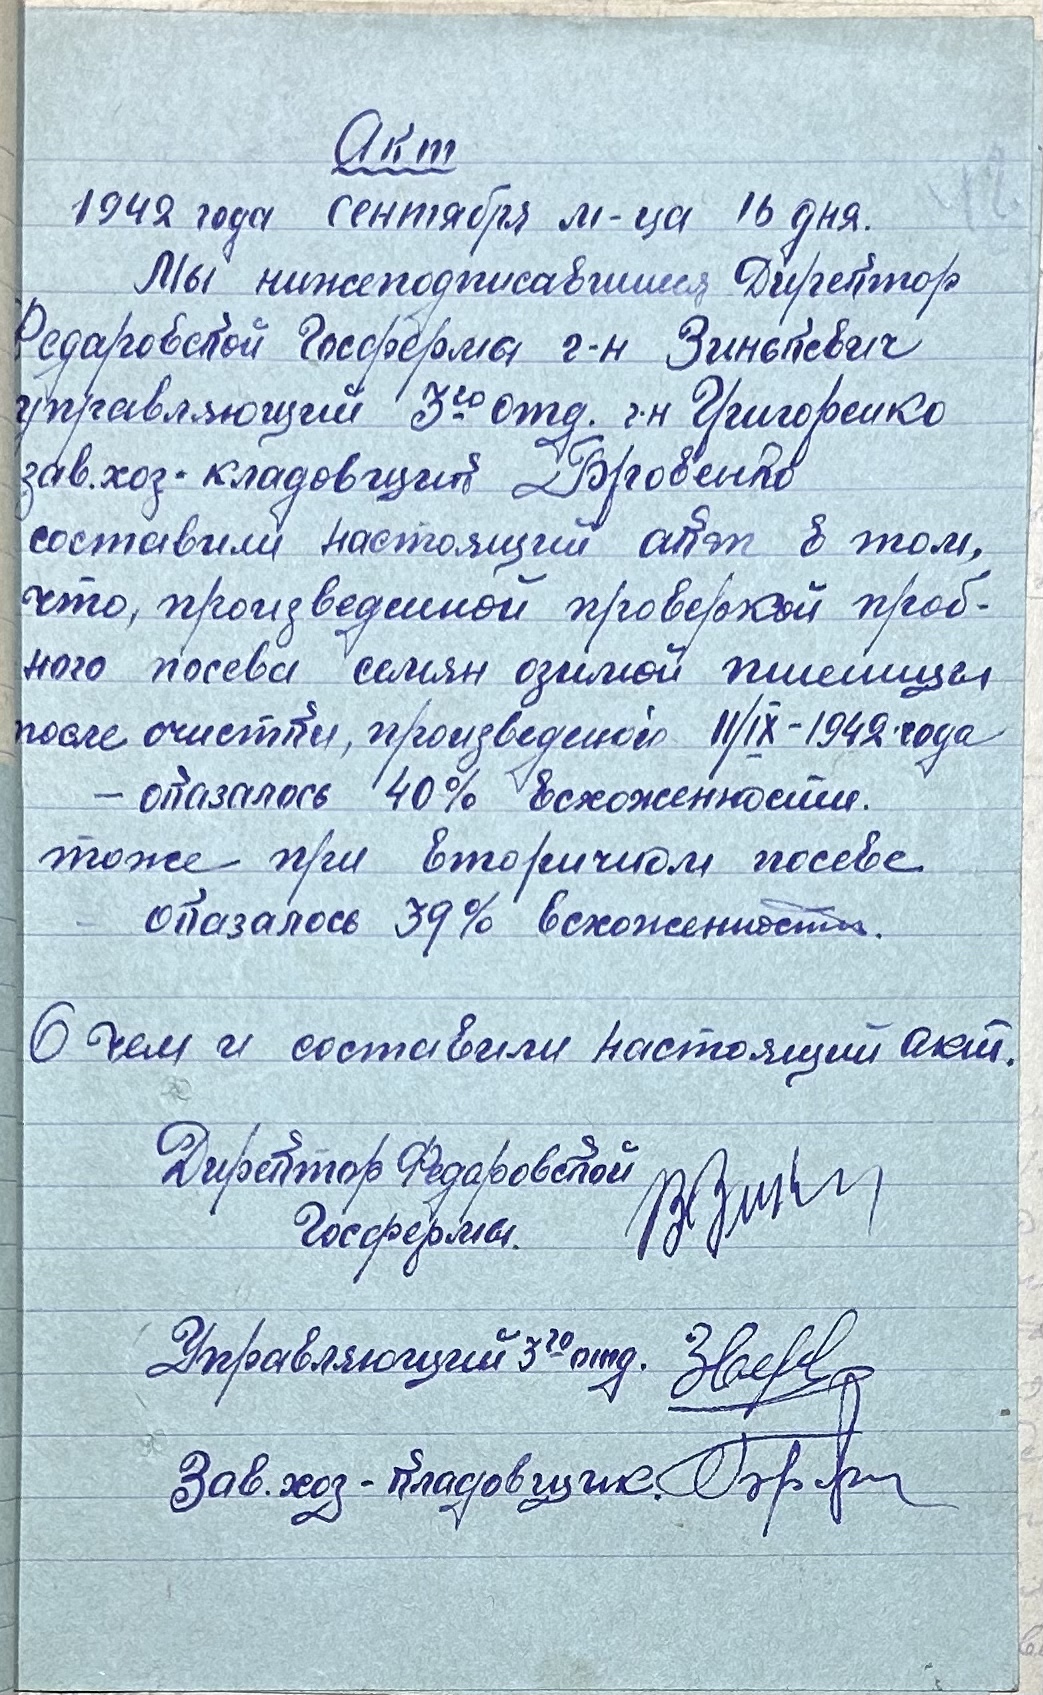 Акт
1942 года сентября м-ца 16 дня.
Мы нижеподписавшиеся Директор
Федаровской Госфермы г-н Зинькевич
управляющий 3го отд. г-н Григоренко
зав.хоз-кладовщик
составили настоящий акт в том,
что, произведенной проверкой проб-
ного посева семян озимой пшеницы
после очистки, произведеной 11/IX-1942 года
- оказалось 40% всхоженности.
тоже при вторичном посеве
- оказалось 39% всхоженности.
О чем и составили настоящий акт.
Директор Федаровской
Госфермы.
Управляющий 3го отд.
Зав.хоз-кладовщик.